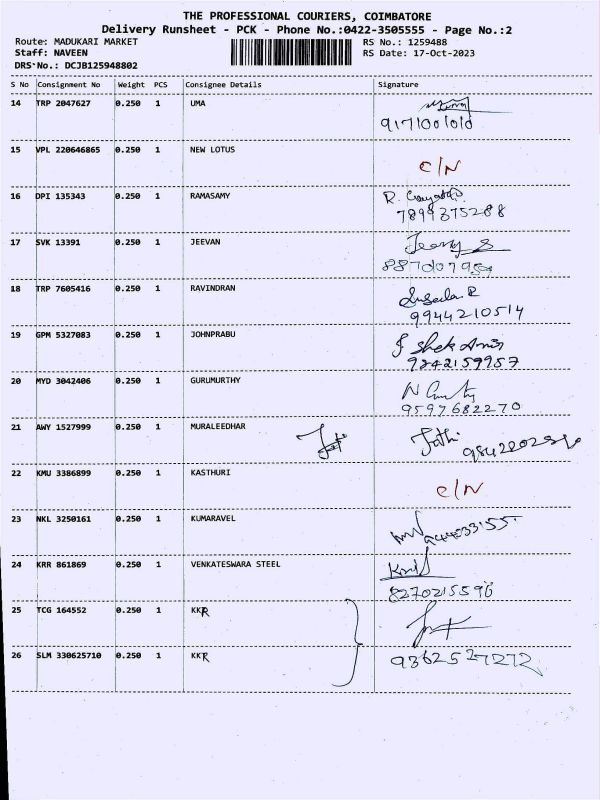 THE PROFESSIONAL COURIERS, COIMBATORE
Delivery Runsheet - PCK - Phone No.:0422-3505555 - Page No.:2
Route: MADUKARI MARKET RS No.: 1259488
Staff: NAVEEN RS Date: 17-Oct-2023
DRS No.: DCJB125948802
S No Consignment No Weight PCS Consignee Details Signature
14 TRP 2047627 0.250 1 UMA
9171001010
15 VPL 220646865 0.250 1 NEW LOTUS
C/N
16 DPI 135343 0.250 1 RAMASAMY R.
7899375288
17 SVK 13391 0.250 1 JEEVAN
18 TRP 7605416 0.250 1 RAVINDRAN Suseela R
9944210514
19 GPM 5327083 0.250 1 JOHNPRABU
9842159957
20 MYD 3042406 0.250 1 GURUMURTHY
9597682270
21 AWY 1527999 0.250 1 MURALEEDHAR Jothi
22 KMU 3386899 0.250 1 KASTHURI
C/N
23 NKL 3250161 0.250 1 KUMARAVEL
24 KRR 861869 0.250 1 VENKATESWARA STEEL
8270215596
25 TCG 164552 0.250 1 KKR
26 SLM 330625710 0.250 1 KKR 9362527272